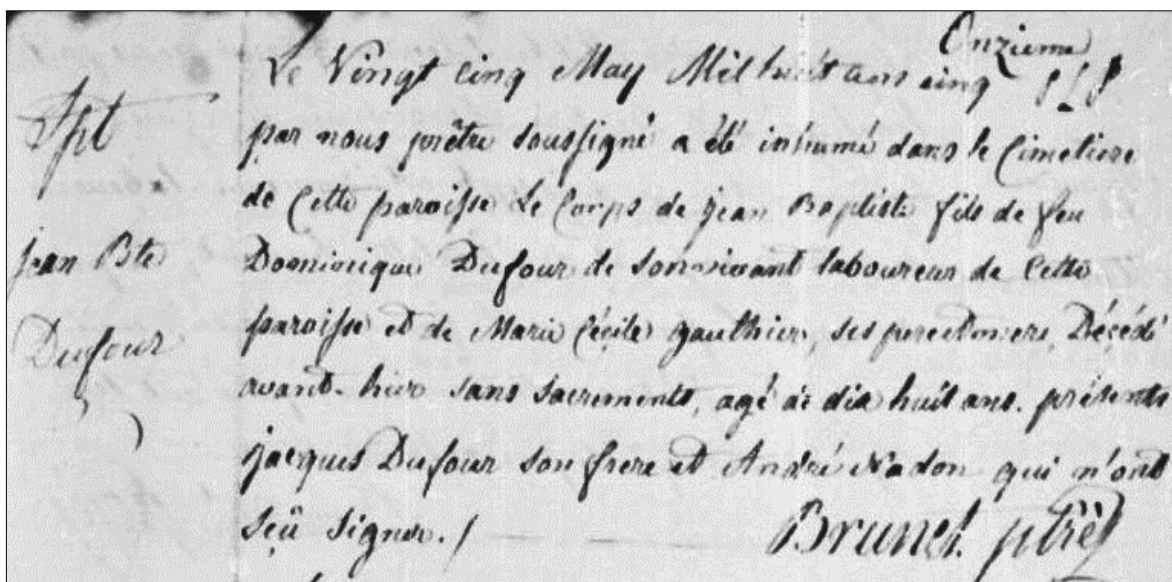 Onzieme
Le Vingt Cinq May Mil huit cens cinq
Spt par nous prêtre soussigné a été inhumé dans le Cimetiere
de Cette paroisse Le Corps de jean Baptiste fils de feu
jean Bte Dominique Dufour de son vivant laboureur de Cette
Dufour paroisse et de Marie Cécile gauthier, ses pere et mere, Décédé
avant-hier sans sacrements, agé de dix huit ans. présents
jacques Dufour son frere et André Nadon qui n'ont
sçû signer./ Brunet ptrê